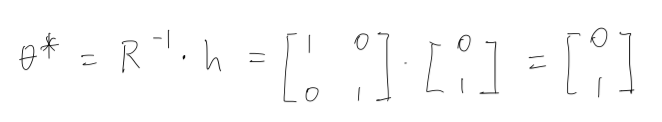 θ* = R⁻¹ · h = [1 0; 0 1] · [0; 1] = [0; 1]